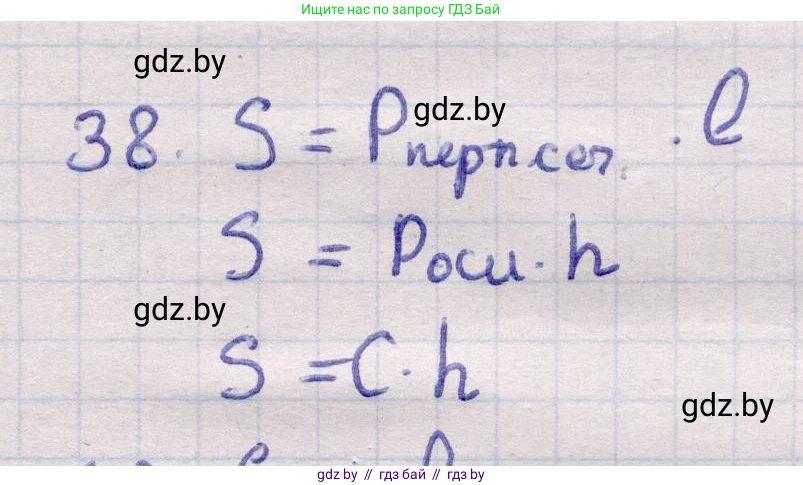 Ищите нас по запросу ГДЗ Бай
gdz.by
38. S = Pперп.сеч. · l
gdz.by
S = Pосн · h
gdz.by
S = C · h
gdz.by
gdz.by // гдз бай // gdz.by